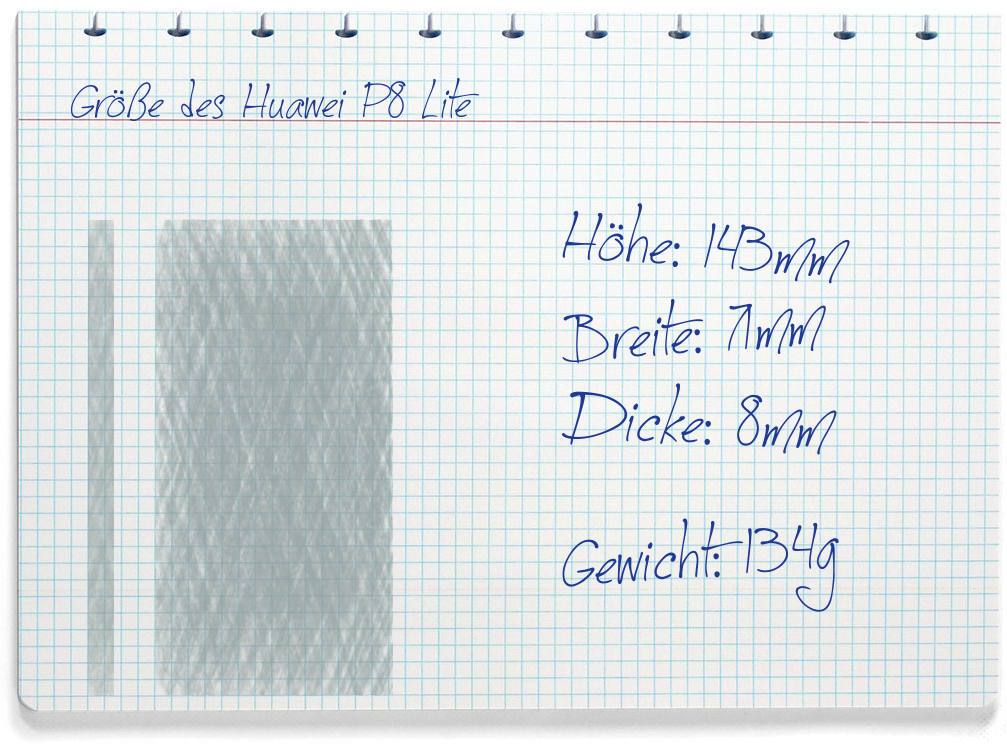 Größe des Huawei P8 Lite
Höhe: 143mm
Breite: 71mm
Dicke: 8mm
Gewicht: 134g